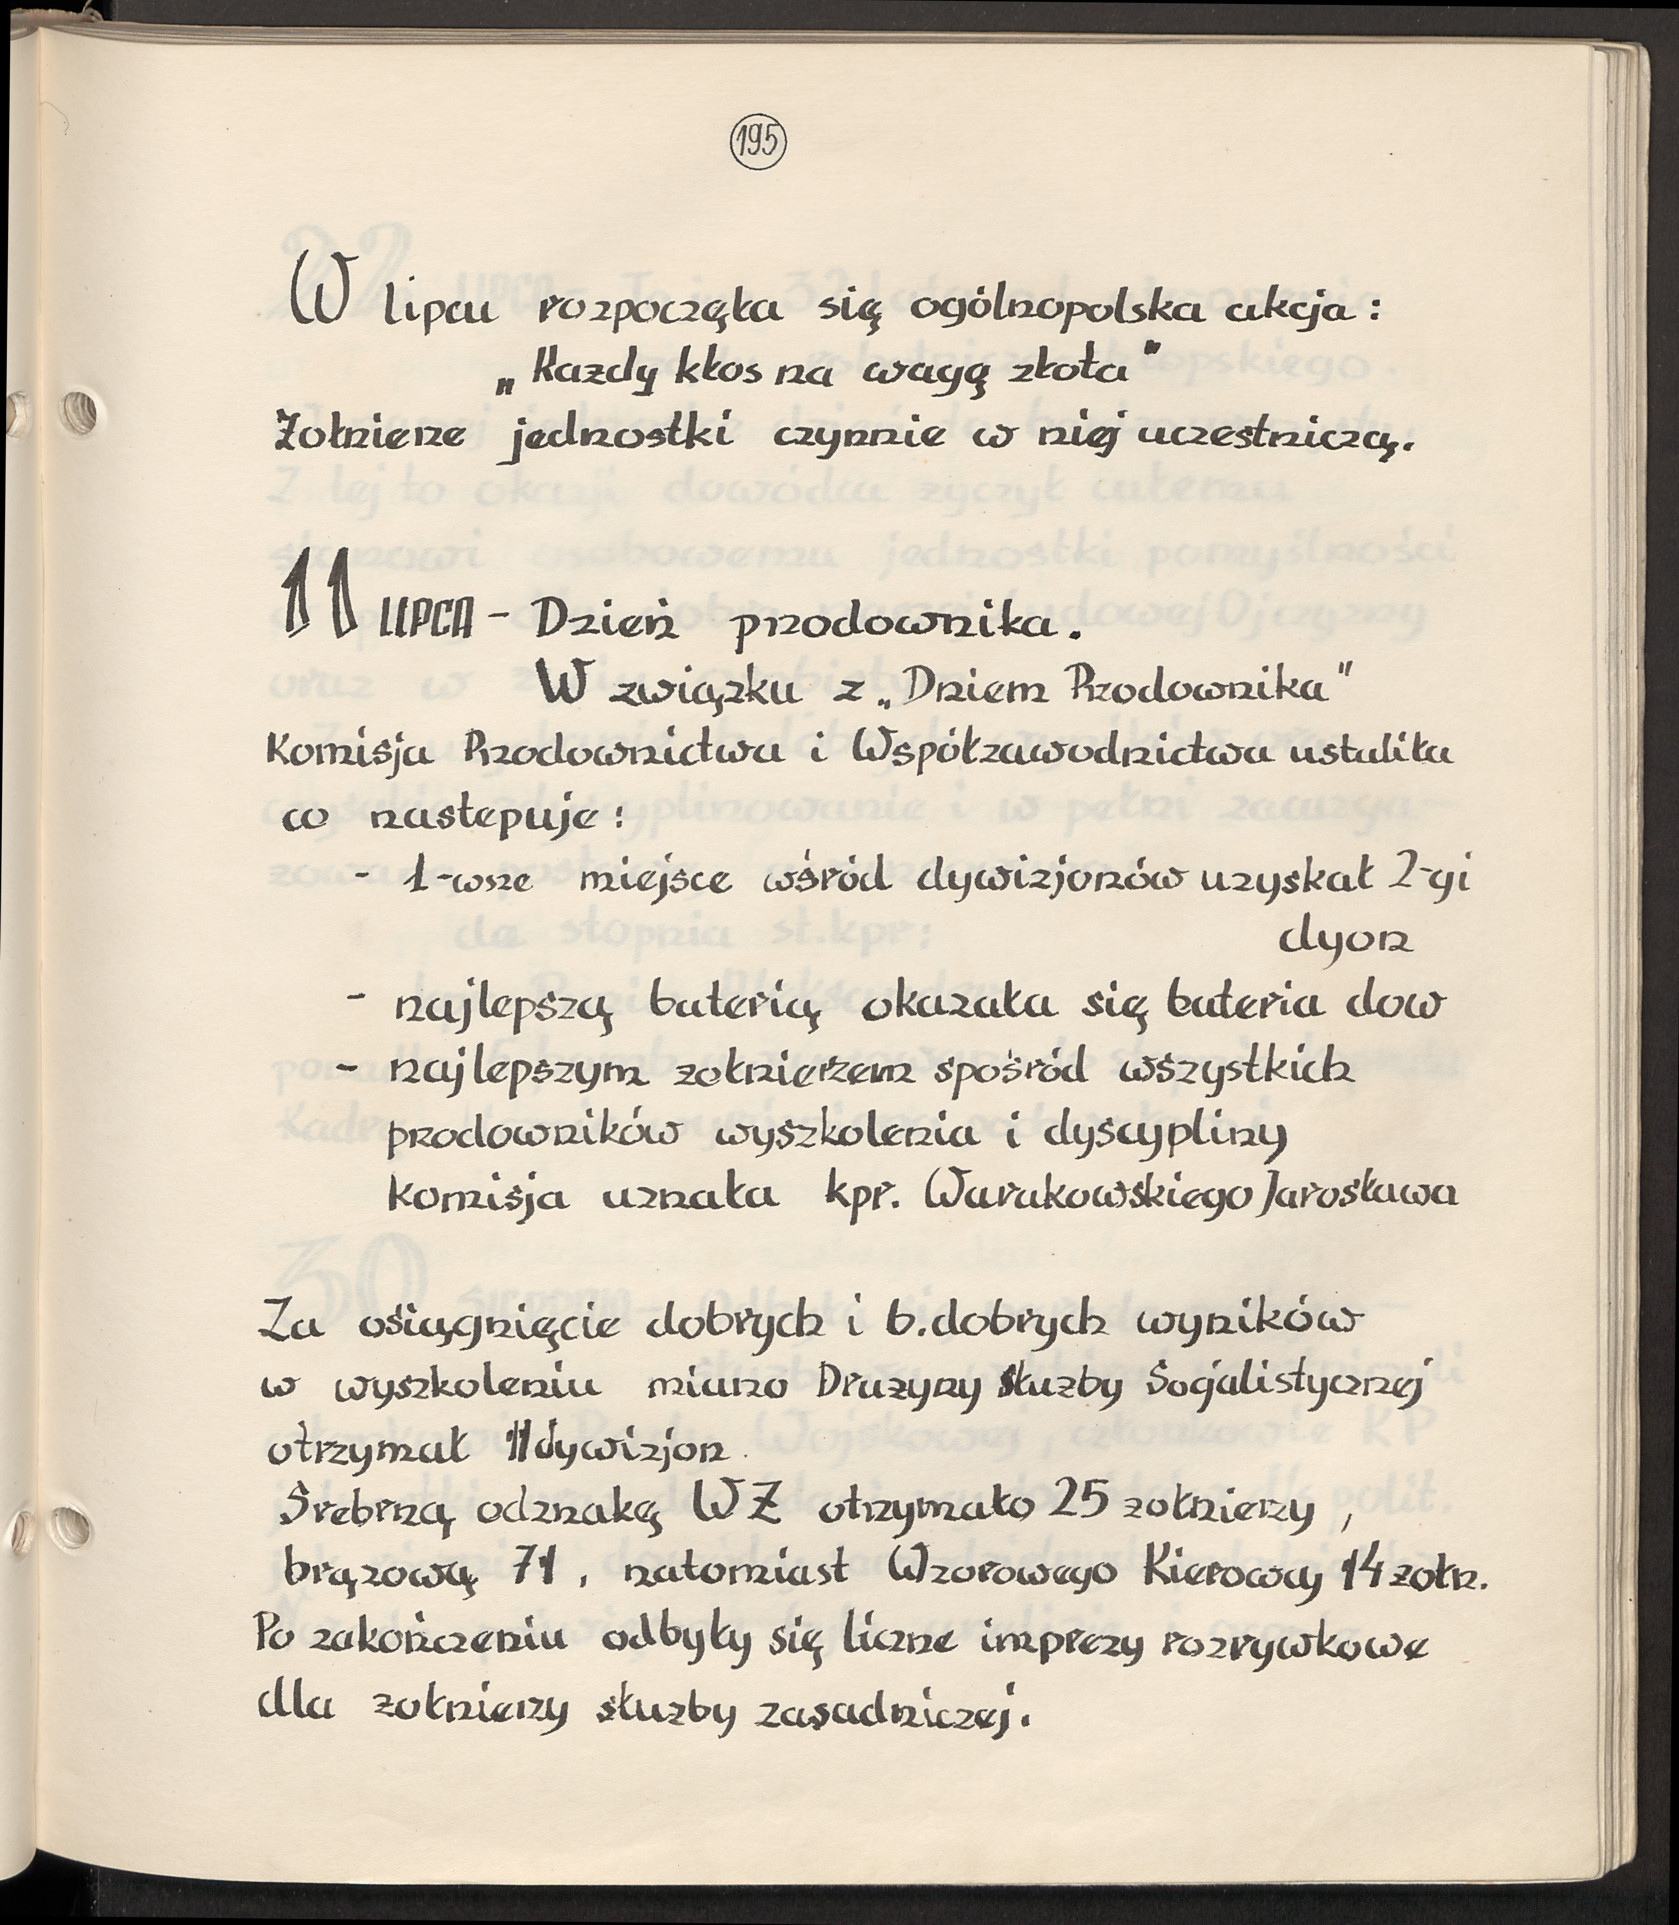 195
W lipcu rozpoczęła się ogólnopolska akcja :
„Każdy kłos na wagę złota"
Żołnierze jednostki czynnie w niej uczestniczą.
11 LIPCA - Dzień przodownika.
W związku z „Dniem Przodownika"
Komisja Przodownictwa i Współzawodnictwa ustaliła
co nastepuje :
- 1-wsze miejsce wśród dywizjonów uzyskał 2-gi
dyon
- najlepszą baterią okazała się bateria dow
- najlepszym żołnierzem spośród wszystkich
przodowników wyszkolenia i dyscypliny
Komisja uznała kpr. Warakowskiego Jarosława
Za osiągnięcie dobrych i b.dobrych wyników
w wyszkoleniu miano Drużyny Służby Socjalistycznej
otrzymał II dywizjon.
Srebrną odznakę WŻ otrzymało 25 żołnierzy ,
brązową 71 , natomiast Wzorowego Kierowcy 14 żołn.
Po zakończeniu odbyły się liczne imprezy rozrywkowe
dla żołnierzy służby zasadniczej.